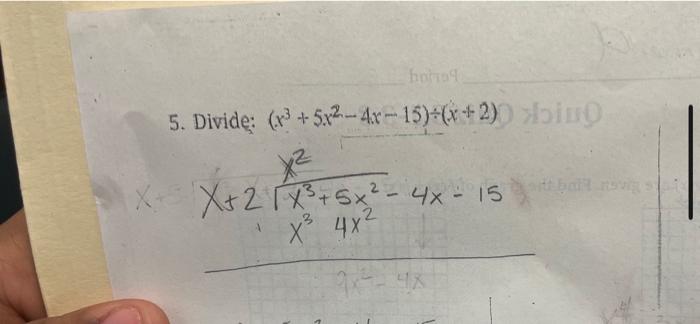 5. Divide: (x³ + 5x² - 4x - 15)÷(x + 2)
x²
x+2 √x³+5x²-4x-15
x³ 4x²